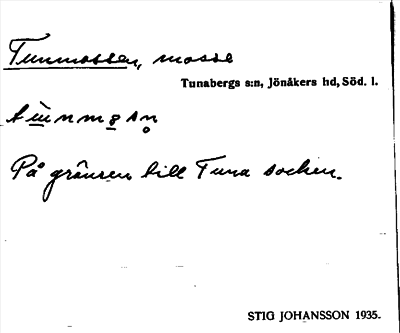 Tunmossen, mosse
Tunabergs s:n, Jönåkers hd, Söd. l.
På gränsen till Tuna socken.
STIG JOHANSSON 1935.